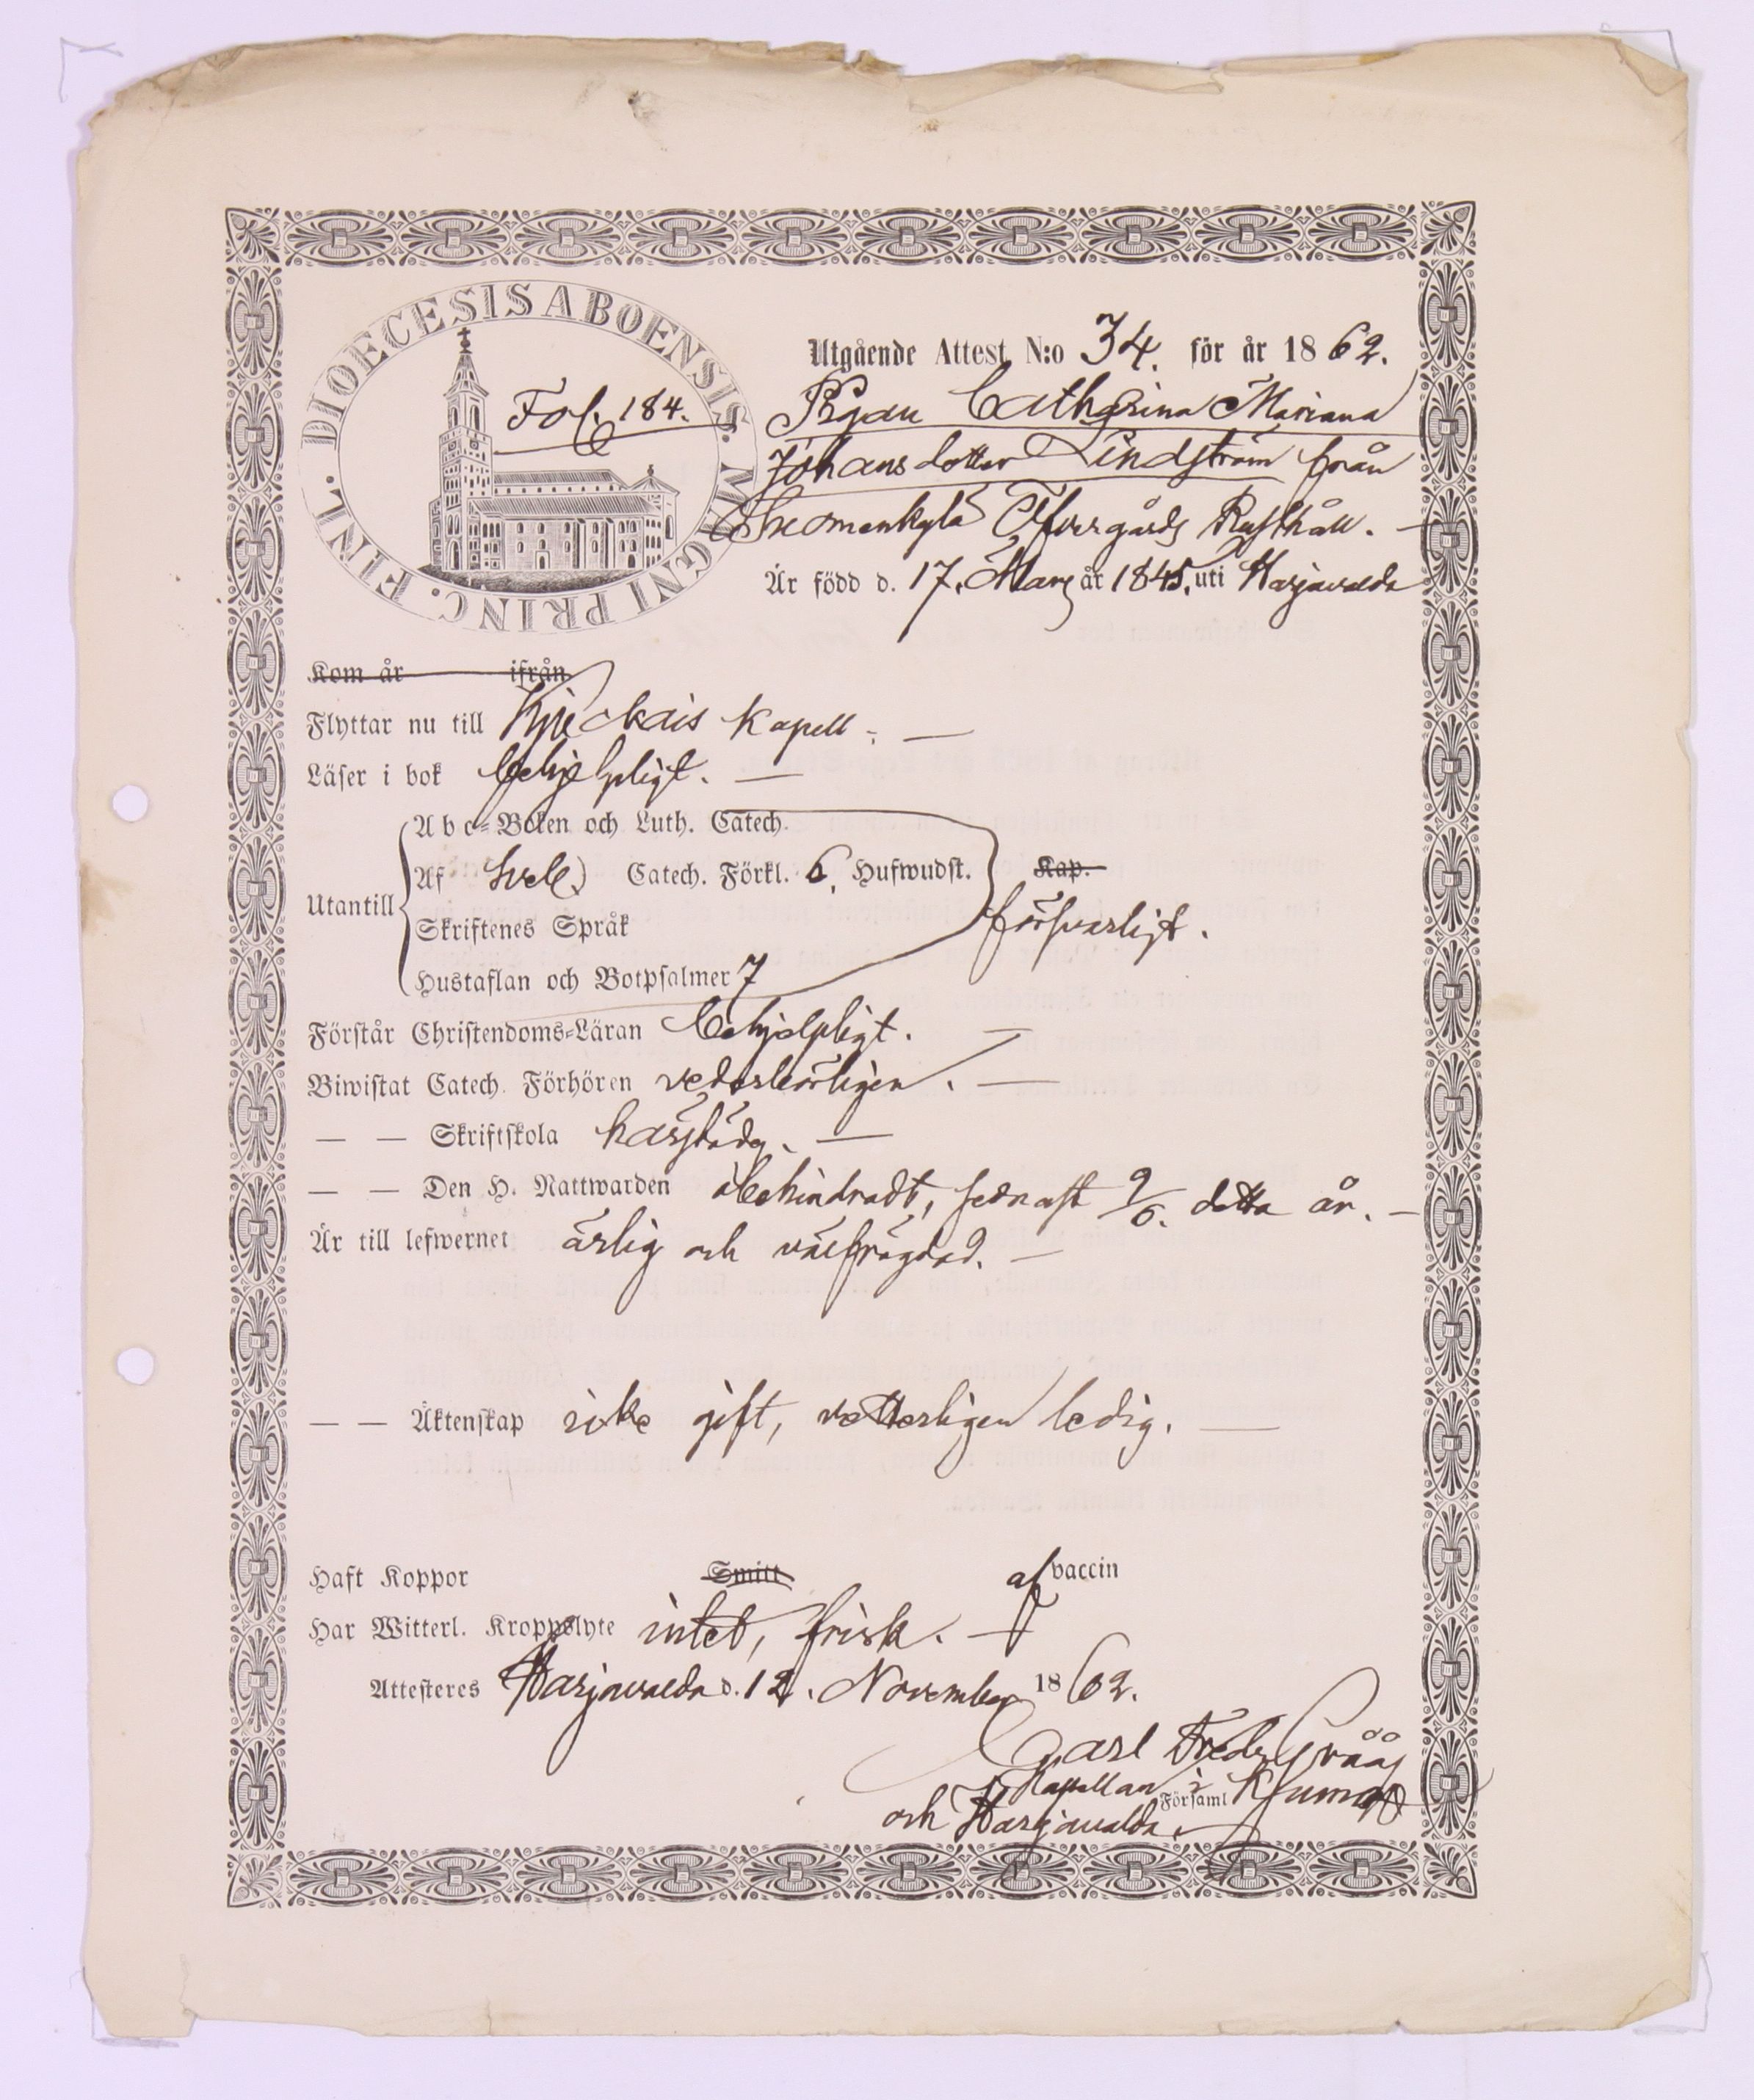 DIOECESIS ABOENSIS. MAGNI PRINC. FINL.
Fol. 184.
Utgående Attest N:o 34. för år 1862.
Pigan Catharina Mariana
Johansdotter Lindström från
Öfvergårds Rusthåll. —
Är född d. 17. Mars år 1845. uti Harjavalda
Kom år ifrån
Flyttar nu till Kapell. —
Läser i bok behjelpligt. —
Abc-Boken och Luth. Catech.
Af Sveb. Catech. Förkl. 6. Hufwudst. Kap.
Utantill försvarligt.
Skriftenes Språk
Hustaflan och Botpsalmer 7
Förstår Christendoms-Läran behjelpligt. —
Biwistat Catech. Förhören vederbörligen. —
— — Skriftskola —
— — Den H. Nattwarden obehindradt, sednast 9/6. detta år. —
Är till lefwernet ärlig och välfrägdad. —
— — Äktenskap icke gift, vetterligen ledig. —
Haft Koppor Smitt af vaccin
Har Witterl. Kroppslyte intet, frisk. —
Attesteres Harjavalda d. 12. November 1862.
Carl Fredr. Gråå
Kapellan i Församl Kjumo
och Harjavalda.